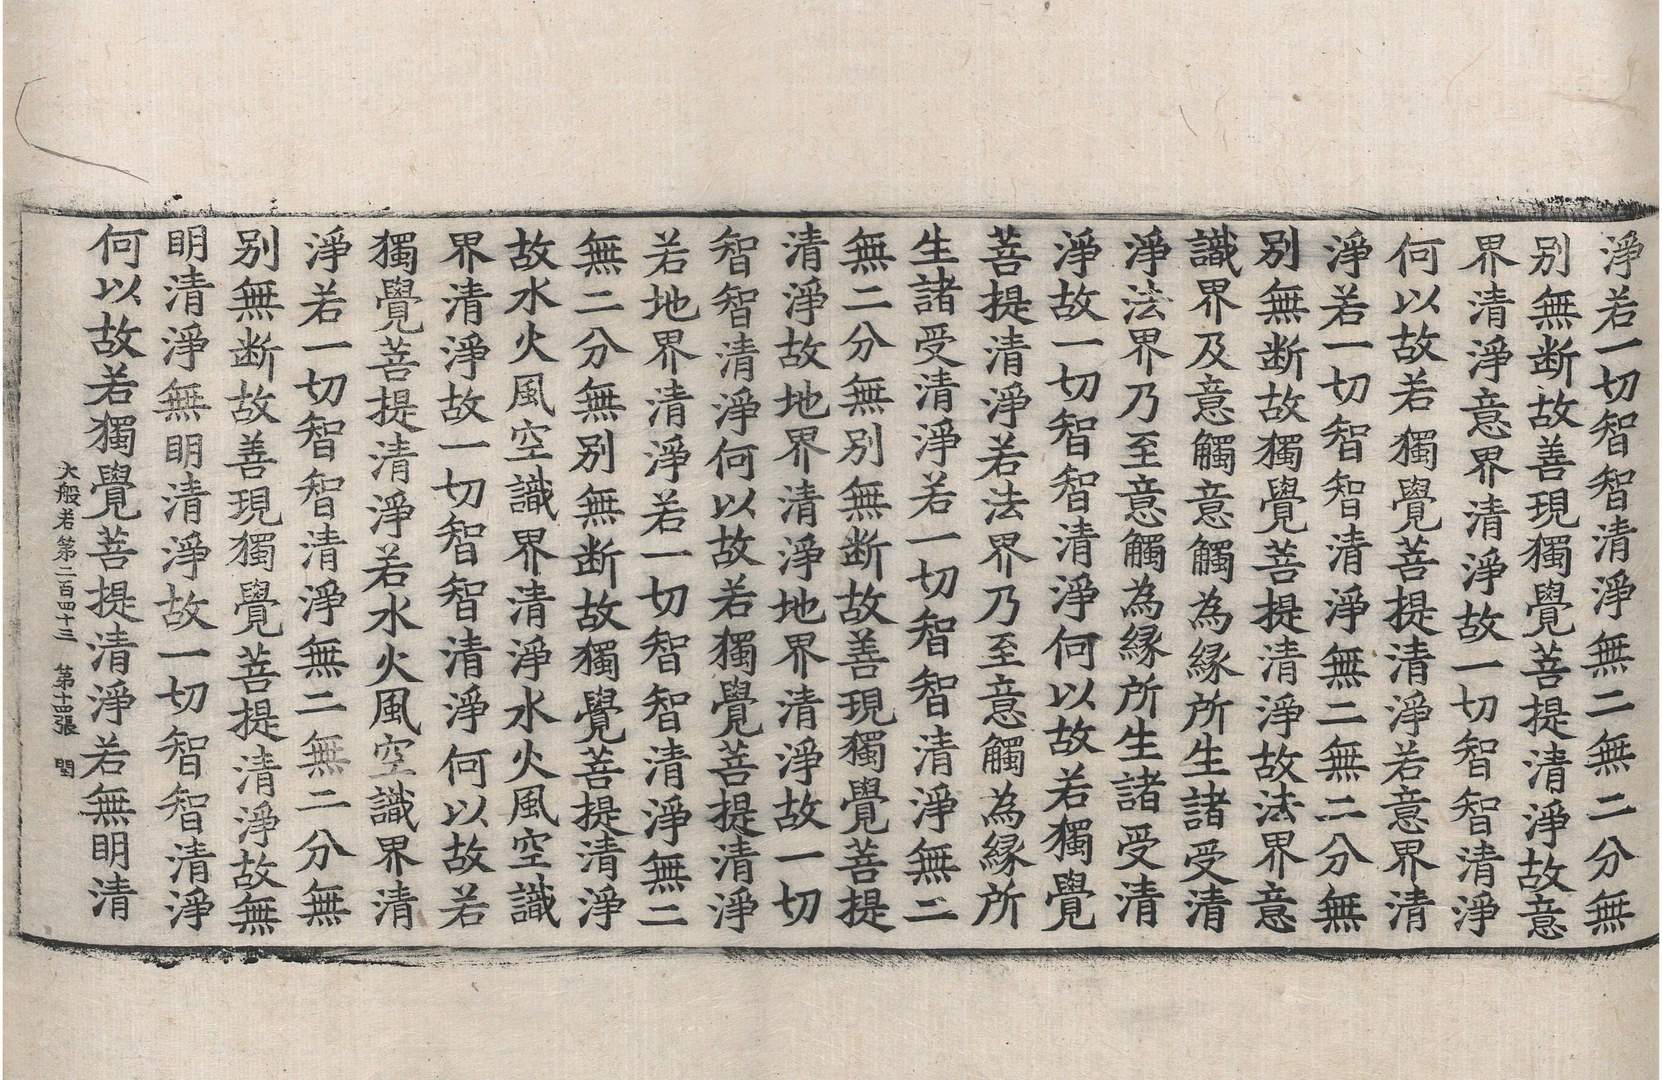 淨若一切智智清淨無二無二分無
別無断故善現獨覺菩提清淨故意
界清淨意界清淨故一切智智清淨
何以故若獨覺菩提清淨若意界清
淨若一切智智清淨無二無二分無
別無断故獨覺菩提清淨故法界意
識界及意觸意觸為緣所生諸受清
淨法界乃至意觸為緣所生諸受清
淨故一切智智清淨何以故若獨覺
菩提清淨若法界乃至意觸為緣所
生諸受清淨若一切智智清淨無二
無二分無別無断故善現獨覺菩提
清淨故地界清淨地界清淨故一切
智智清淨何以故若獨覺菩提清淨
若地界清淨若一切智智清淨無二
無二分無別無断故獨覺菩提清淨
故水火風空識界清淨水火風空識
界清淨故一切智智清淨何以故若
獨覺菩提清淨若水火風空識界清
淨若一切智智清淨無二無二分無
別無断故善現獨覺菩提清淨故無
明清淨無明清淨故一切智智清淨
何以故若獨覺菩提清淨若無明清
大般若第二百四十三 第十四張 閏